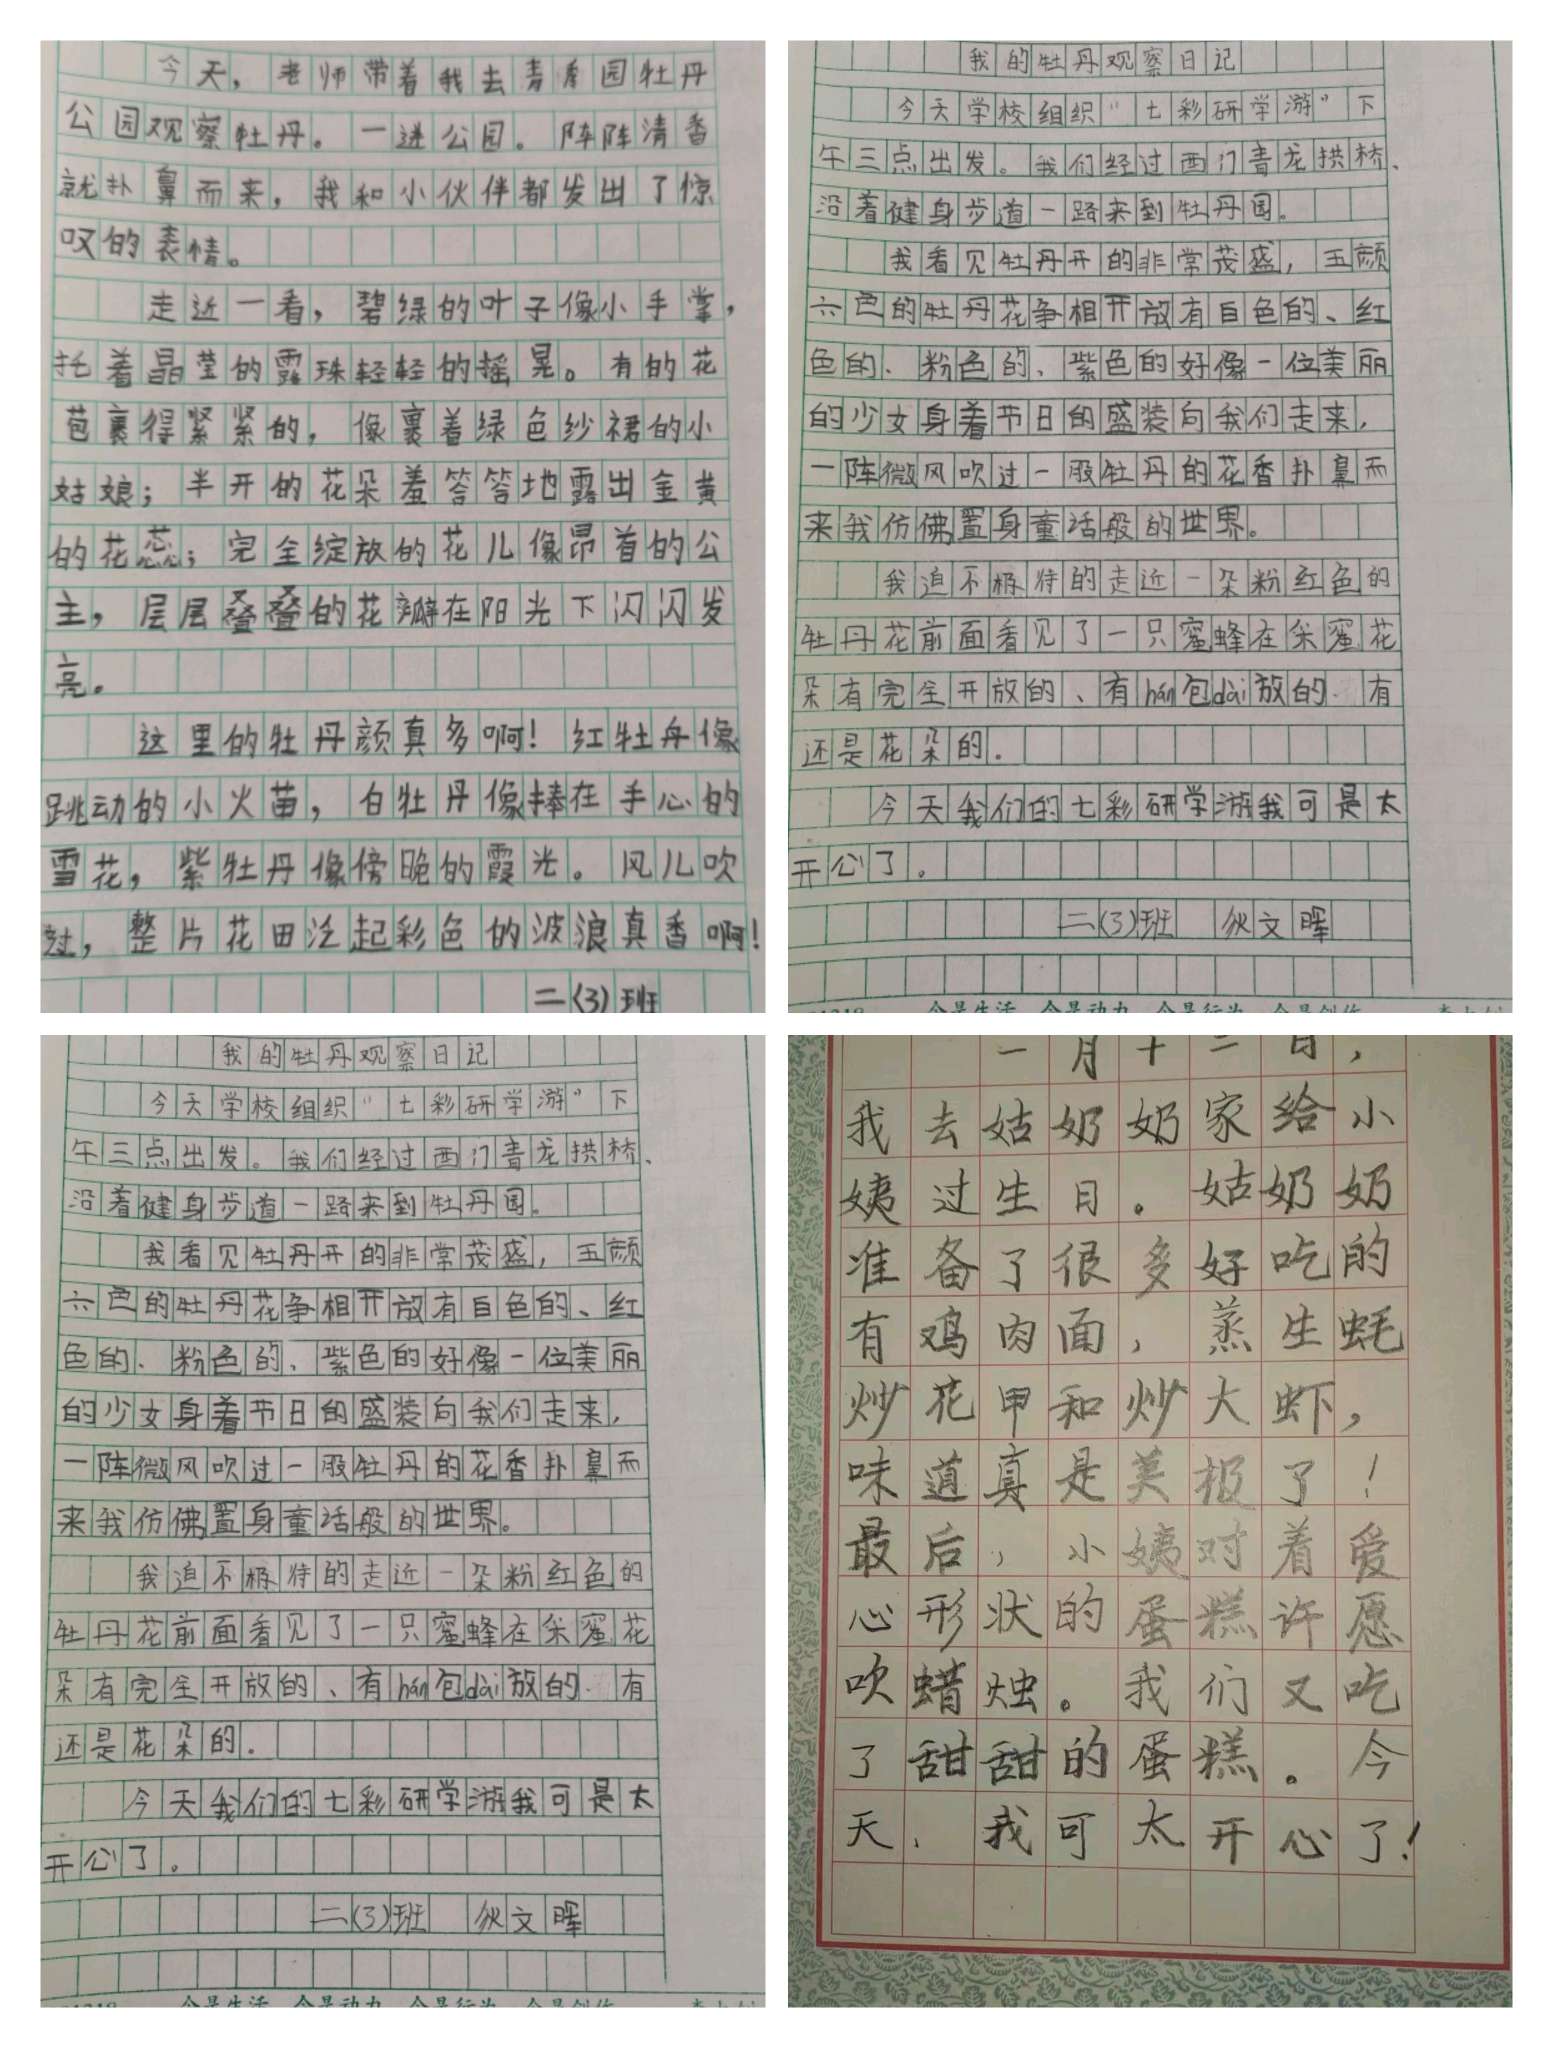 今天，老师带着我去青年园牡丹
公园观察牡丹。一进公园。阵阵清香
就扑鼻而来，我和小伙伴都发出了惊
叹的表情。
走近一看，碧绿的叶子像小手掌，
托着晶莹的露珠轻轻的摇晃。有的花
苞裹得紧紧的，像裹着绿色纱裙的小
姑娘；半开的花朵羞答答地露出金黄
的花蕊；完全绽放的花儿像昂首的公
主，层层叠叠的花瓣在阳光下闪闪发
亮。
这里的牡丹颜真多啊！红牡丹像
跳动的小火苗，白牡丹像捧在手心的
雪花，紫牡丹像傍晚的霞光。风儿吹
过，整片花田泛起彩色的波浪真香啊！
二(3)班
我的牡丹观察日记
今天学校组织“七彩研学游”下
午三点出发。我们经过西门青龙拱桥、
沿着健身步道一路来到牡丹园。
我看见牡丹开的非常茂盛，五颜
六色的牡丹花争相开放有白色的、红
色的、粉色的、紫色的好像一位美丽
的少女身着节日的盛装向我们走来，
一阵微风吹过一股牡丹的花香扑鼻而
来我仿佛置身童话般的世界。
我迫不极待的走近一朵粉红色的
牡丹花前面看见了一只蜜蜂在采蜜花
朵有完全开放的、有hán包dài放的、有
还是花朵的.
今天我们的七彩研学游我可是太
开心了。
二(3)班 狄文晖
我的牡丹观察日记
今天学校组织“七彩研学游”下
午三点出发。我们经过西门青龙拱桥、
沿着健身步道一路来到牡丹园。
我看见牡丹开的非常茂盛，五颜
六色的牡丹花争相开放有白色的、红
色的、粉色的、紫色的好像一位美丽
的少女身着节日的盛装向我们走来，
一阵微风吹过一股牡丹的花香扑鼻而
来我仿佛置身童话般的世界。
我迫不极待的走近一朵粉红色的
牡丹花前面看见了一只蜜蜂在采蜜花
朵有完全开放的、有hán包dài放的、有
还是花朵的.
今天我们的七彩研学游我可是太
开心了。
二(3)班 狄文晖
一月十二日，
我去姑奶奶家给小
姨过生日。姑奶奶
准备了很多好吃的
有鸡肉面，蒸生蚝
炒花甲和炒大虾，
味道真是美极了！
最后，小姨对着爱
心形状的蛋糕许愿
吹蜡烛。我们又吃
了甜甜的蛋糕。今
天，我可太开心了！